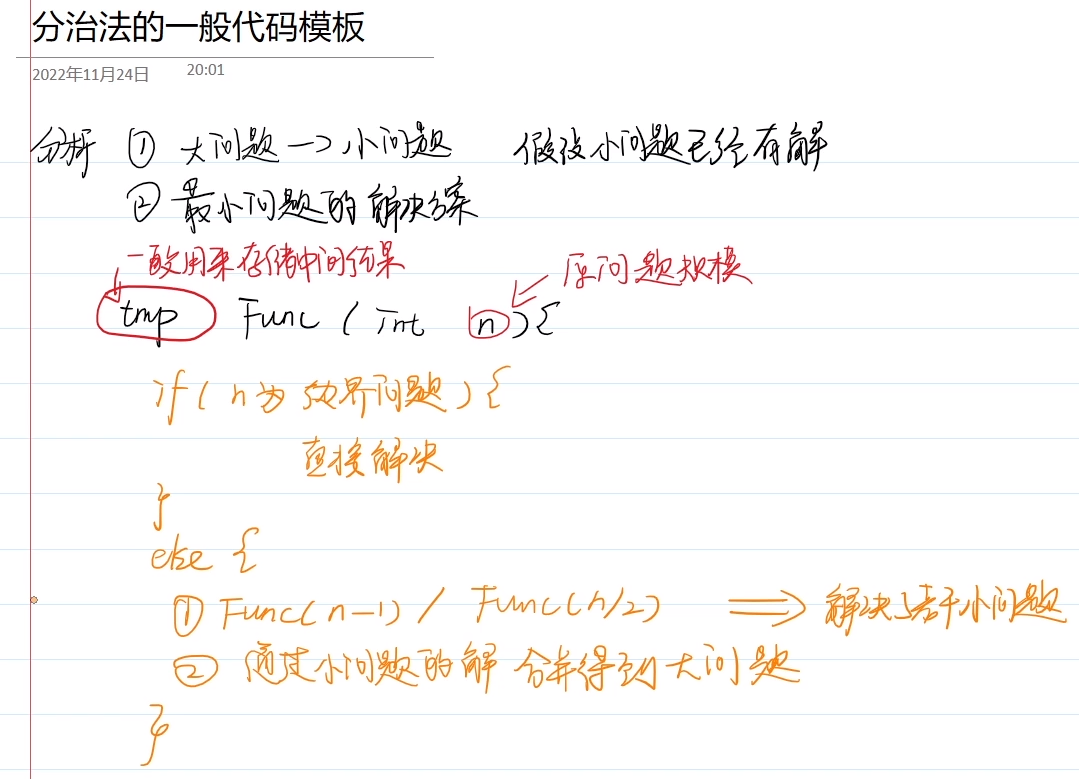 分治法的一般代码模板
2022年11月24日 20:01
分析 ① 大问题 —> 小问题 假设小问题已经有解
② 最小问题的解决方案
一般用来存储中间结果
原问题规模
tmp Func ( int n ) {
if ( n为边界问题 ) {
直接解决
}
else {
① Func(n-1) / Func(n/2) ⟹ 解决了若干小问题
② 通过小问题的解 合并得到大问题
}